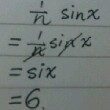 1/n sinx
= 1/n sinx
= six
= 6.